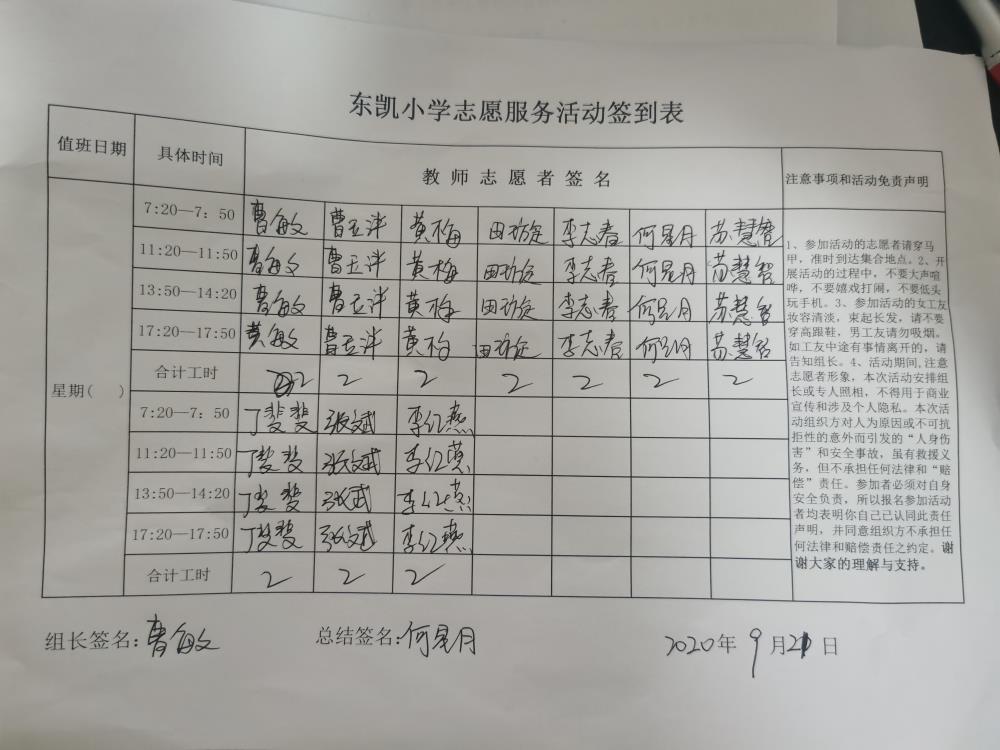 东凯小学志愿服务活动签到表
值班日期 具体时间 教师志愿者签名 注意事项和活动免责声明
7:20—7：50 曹敏 曹玉泮 黄梅 李志春 何星月 苏慧智
11:20—11:50 曹敏 曹玉泮 黄梅 李志春 何星月 苏慧智
13:50—14:20 曹敏 曹玉泮 黄梅 李志春 何星月 苏慧智
17:20—17:50 黄敏 曹玉泮 黄梅 李志春 何星月 苏慧智
合计工时 2 2 2 2 2 2 2
星期( )
7:20—7：50 丁斐斐 张斌 李红燕
11:20—11:50 丁斐斐 张斌 李红燕
13:50—14:20 丁斐斐 张斌 李红燕
17:20—17:50 丁斐斐 张斌 李红燕
合计工时 2 2 2
1、参加活动的志愿者请穿马
甲，准时到达集合地点。2、开
展活动的过程中，不要大声喧
哗，不要嬉戏打闹，不要低头
玩手机。3、参加活动的女工友
妆容清淡，束起长发，请不要
穿高跟鞋，男工友请勿吸烟。
如工友中途有事情离开的，请
告知组长。4、活动期间,注意
志愿者形象，本次活动安排组
长或专人照相，不得用于商业
宣传和涉及个人隐私。本次活
动组织方对人为原因或不可抗
拒性的意外而引发的“人身伤
害”和安全事故，虽有救援义
务，但不承担任何法律和“赔
偿”责任。参加者必须对自身
安全负责，所以报名参加活动
者均表明你自己已认同此责任
声明，并同意组织方不承担任
何法律和赔偿责任之约定。谢
谢大家的理解与支持。
组长签名：曹敏 总结签名：何星月 2020年 9月21日